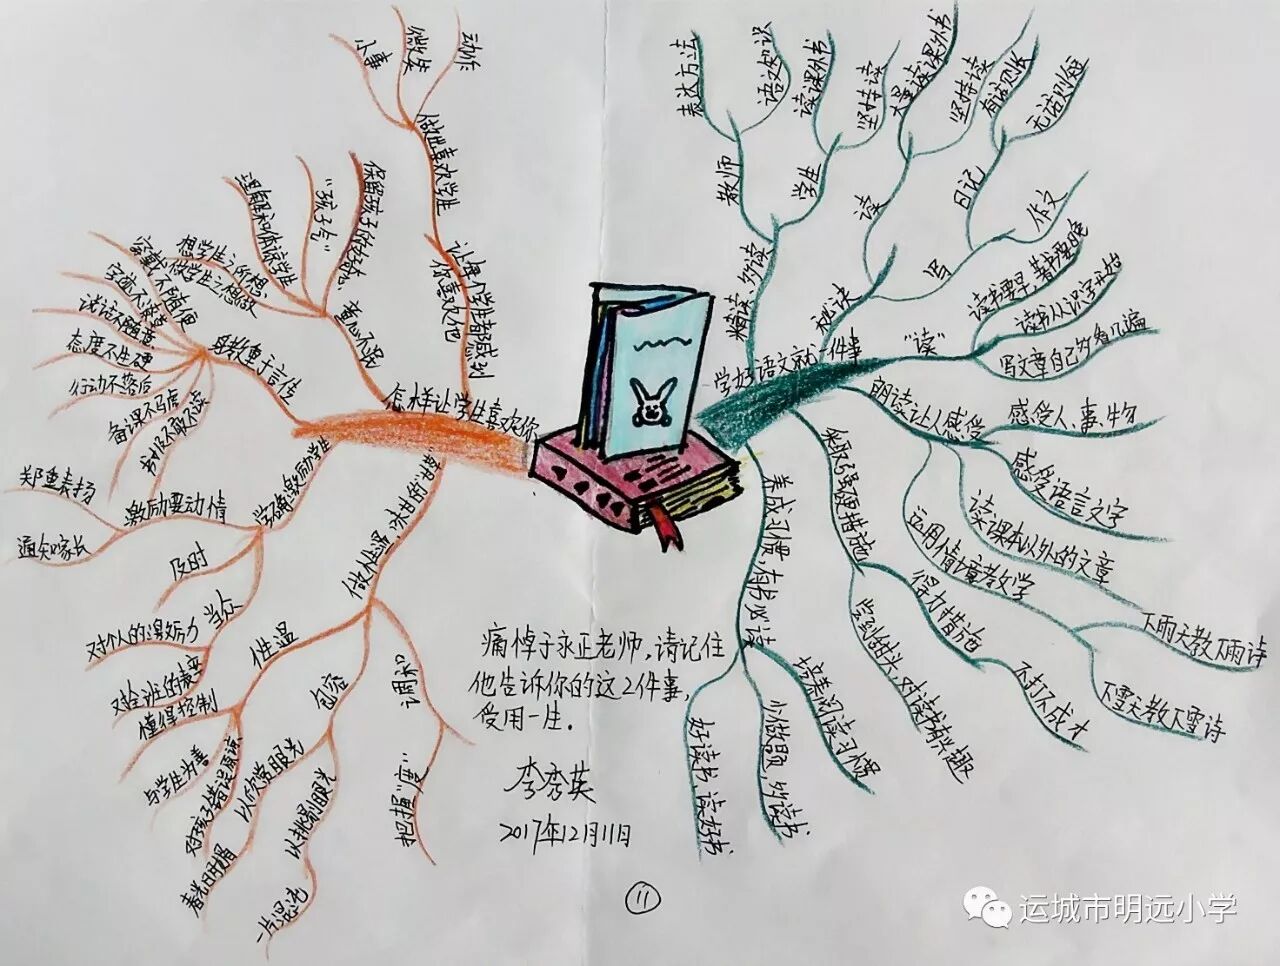 怎样让学生喜欢你
让每个学生都感到
你喜欢他
做世喜欢学生
小事
微笑
动作
童心不泯
保留孩子的仪态
"孩子气"
理解和体谅学生
想学生之所想、
做学生之想做
身教重于言传
穿戴不随便
字迹不潦草
谈话不随意
态度不生硬
行动不落后
备课不马虎
学得激励学生
激励要动情
郑重表扬
通知家长
及时
当众
对个人的激励力
对全班的感染
做个性温、淡的
性温
懂得控制
与学生为善
对孩子错误原谅
包容
以欣赏眼光
春光明媚
以挑剔眼光
一片混沌
调和
把握"度"
学好语文就一件事
精读、多读
教师
表达方法
语文知识
学生
读课外书
坚持读
秘诀
读
大量读课外书
坚持读
写
日记
有话则长
无话则短
作文
"读"
读书要早,著书要晚
读书从识字开始
写文章自己多看几遍
朗读让人感受
感受人、事、物
感受语言文字
读课本以外的文章
运用情境考文学
下雨天教下雨诗
下雪天教下雪诗
采取强硬措施
得力措施
不打不成才
尝到甜头,对读书有兴趣
养成习惯,有书必读
培养阅读习惯
少做题,多读书
好读书,读好书
痛悼于永正老师,请记住
他告诉你的这2件事,
受用一生.
李秀英
2017年12月11日
11
运城市明远小学